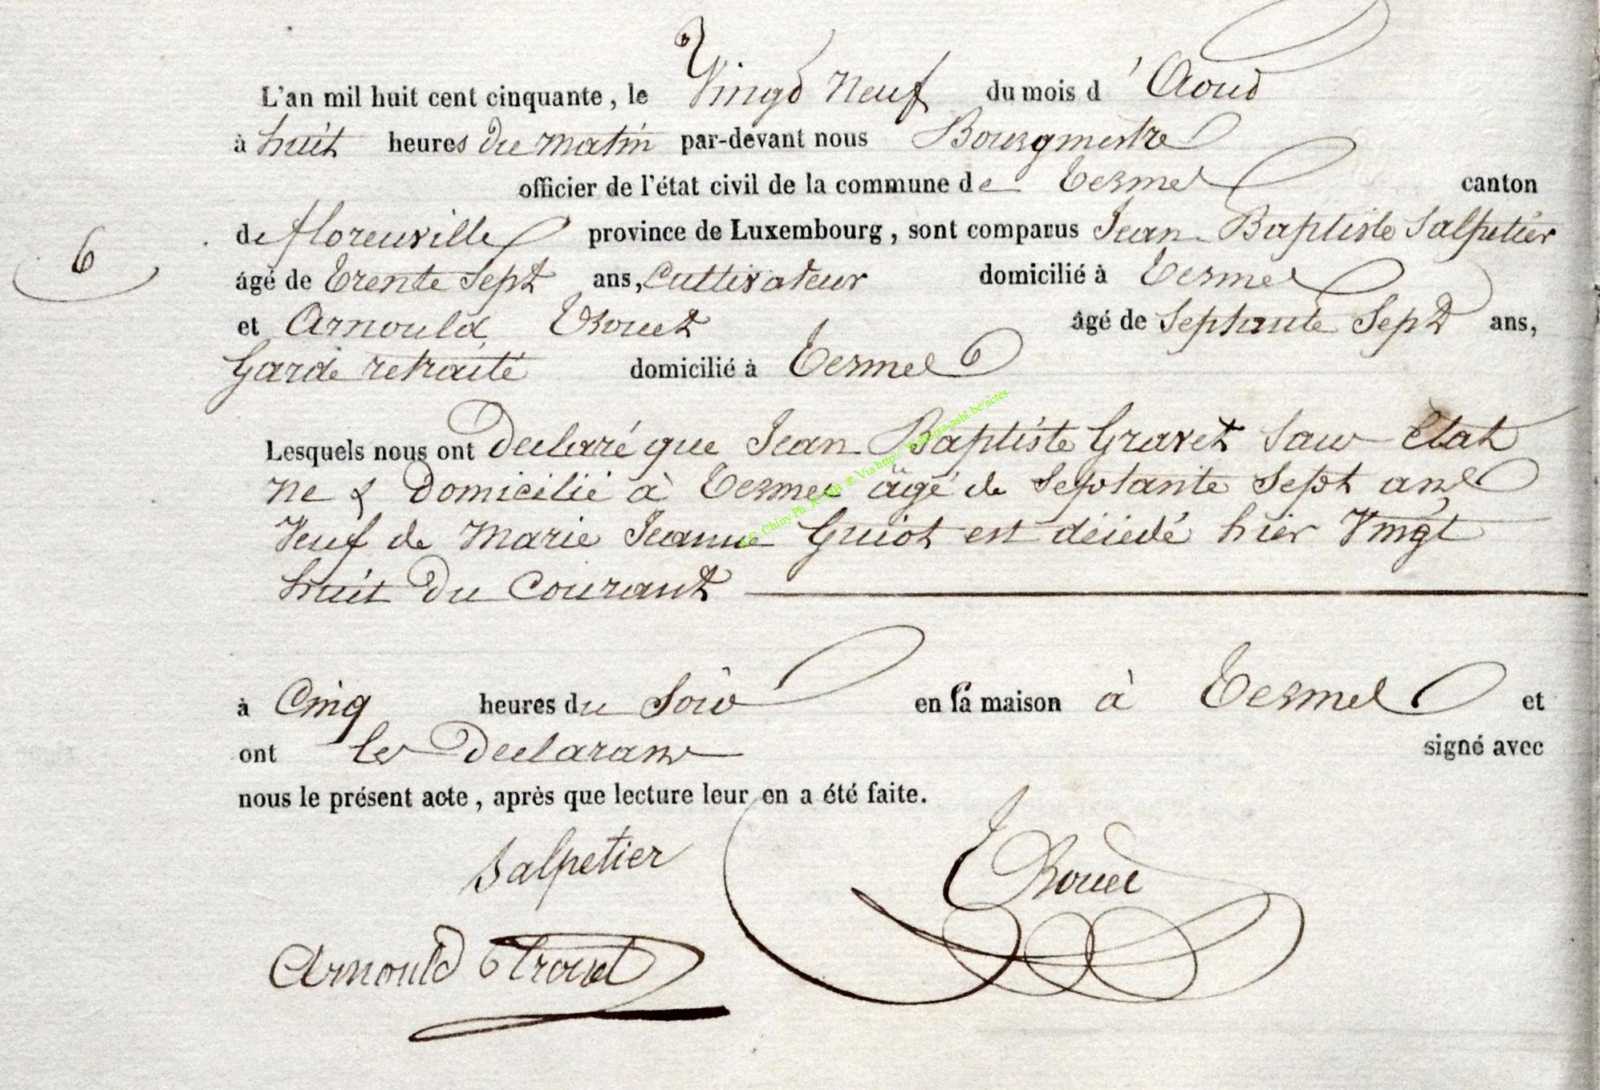 L'an mil huit cent cinquante, le Vingt neuf du mois d'Aoud
à huit heures du matin par-devant nous Bourgmestre
officier de l'état civil de la commune de Termes canton
6 de florenville province de Luxembourg, sont comparus Jean Baptiste Salpetier
âgé de trente sept ans, Cultivateur domicilié à Termes
et Arnould Trouet âgé de Septante Sept ans,
Garde retraité domicilié à Termes
Lesquels nous ont Declaré que Jean Baptiste Gravet Sans état
né & Domicilié à Termes âgé de Septante Sept ans
Veuf de Marie Jeanne Guiot est décédé hier Vingt
huit du Courant
à Cinq heures du Soir en sa maison à Termes et
ont les Declarans signé avec
nous le présent acte, après que lecture leur en a été faite.
Salpetier
Trouet
Arnould Trouet